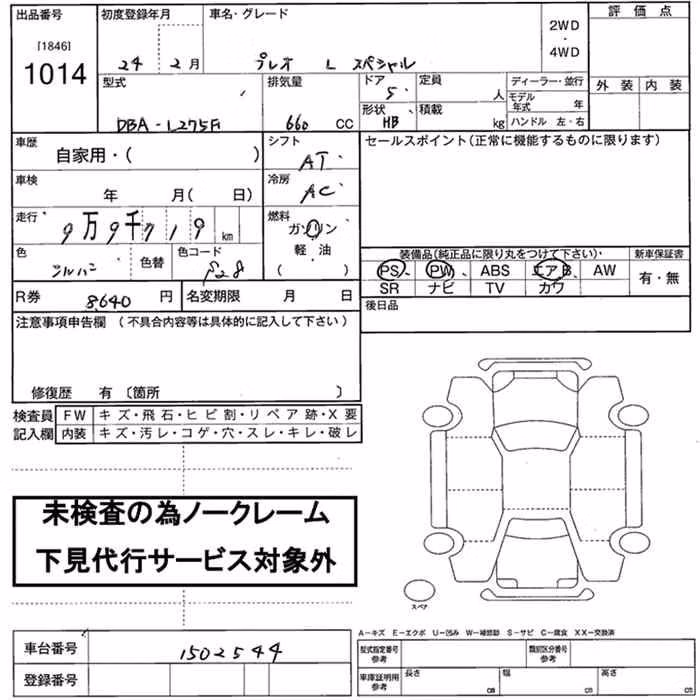 出品番号 初度登録年月 車名・グレード 2WD・4WD 評価点
[1846]
1014 24年 2月 プレオ L スペシャル
型式 排気量 ドア 5 定員 人 ディーラー・並行 外装 内装
モデル年式 年
DBA-L275F 660 CC 形状 HB 積載 kg ハンドル 左・右
車歴 自家用・( ) シフト AT セールスポイント(正常に機能するものに限ります)
車検 年 月( 日) 冷房 AC
走行 9万9千719 km 燃料 ガソリン
軽・油
( )
色 色替 色コード S28 装備品(純品に限り丸をつけて下さい)・ 新車保証書
PS PW ABS エアB AW 有・無
SR ナビ TV カワ
R券 8,640円 名変期限 月 日 後日品
注意事項申告欄 (不具合内容等は具体的に記入して下さい)
修復歴 有〔箇所 〕
検査員 FW キズ・飛石・ヒビ割・リペア跡・X要
記入欄 内装 キズ・汚レ・コゲ・穴・スレ・キレ・破レ
未検査の為ノークレーム
下見代行サービス対象外
スペア
A-キズ E-エクボ U-凹み W-補修跡 S-サビ C-腐食 XX-交換済
車台番号 1502544 型式指定番号 参考 類別区分番号 参考
登録番号 車庫証明用 参考 長さ cm 幅 cm 高さ cm